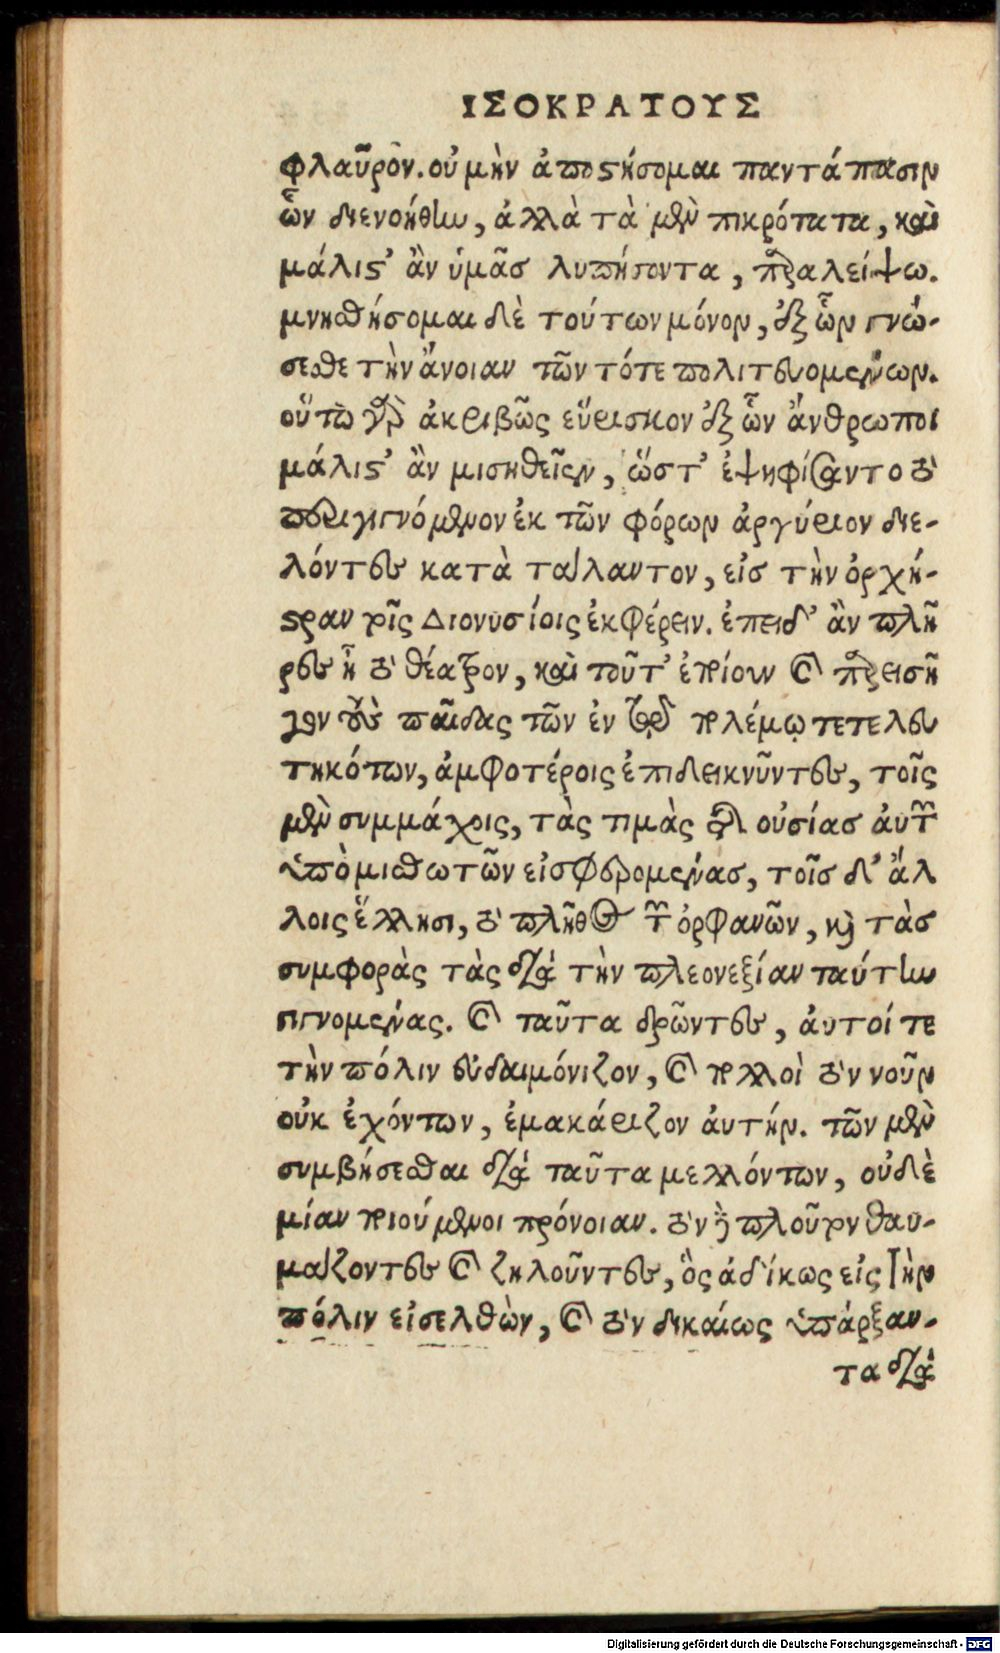 ΙΣΟΚΡΑΤΟΥΣ
φλαῦρον. οὐ μὴν ἀποστήσομαι παντάπασιν
ὧν διενοήθην, ἀλλὰ τὰ μὲν πικρότατα, καὶ
μάλιστ’ ἂν ὑμᾶσ λυπήσοντα, παραλείψω.
μνησθήσομαι δὲ τούτων μόνον, ἐξ ὧν γνώ-
σεσθε τὴν ἄνοιαν τῶν τότε πολιτευομένων.
οὕτω γὰρ ἀκριβῶς εὕρισκον ἐξ ὧν ἄνθρωποι
μάλιστ’ ἂν μισηθεῖεν, ὥστ’ ἐψηφίσαντο τὸ
περιγιγνόμενον ἐκ τῶν φόρων ἀργύριον διε-
λόντες κατὰ τάλαντον, εἰσ τὴν ὀρχή-
στραν τοῖς Διονυσίοις ἐκφέρειν. ἐπειδ’ ἂν πλῆ
ρες ᾖ τὸ θέατρον, καὶ τοῦτ’ ἐποίουν καὶ παρεισῆ
γον τοὺς παῖδας τῶν ἐν τῷ πολέμῳ τετελευ
τηκότων, ἀμφοτέροις ἐπιδεικνῦντες, τοῖς
μὲν συμμάχοις, τὰς τιμὰς τῆς οὐσίασ ἀυτῶν
ὑπὸ μισθωτῶν εἰσφερομένασ, τοῖσ δ’ ἄλ
λοις ἕλλησι, τὸ πλῆθος τῶν ὀρφανῶν, καὶ τὰσ
συμφορὰς τὰς διὰ τὴν πλεονεξίαν ταύτην
γιγνομένας. καὶ ταῦτα δρῶντες, ἀυτοί τε
τὴν πόλιν εὐδαιμόνιζον, καὶ πολλοὶ τῶν νοῦν
οὐκ ἐχόντων, ἐμακάριζον ἀυτήν. τῶν μὲν
συμβήσεσθαι διὰ ταῦτα μελλόντων, οὐδε
μίαν ποιούμενοι πρόνοιαν. τὸν δὲ πλοῦτον θαυ-
μάζοντες καὶ ζηλοῦντες, ὃς ἀδίκως εἰς τὴν
πόλιν εἰσελθὼν, καὶ τὸν δικαίως ὑπάρξαν-
τα διὰ
Digitalisierung gefördert durch die Deutsche Forschungsgemeinschaft - DFG